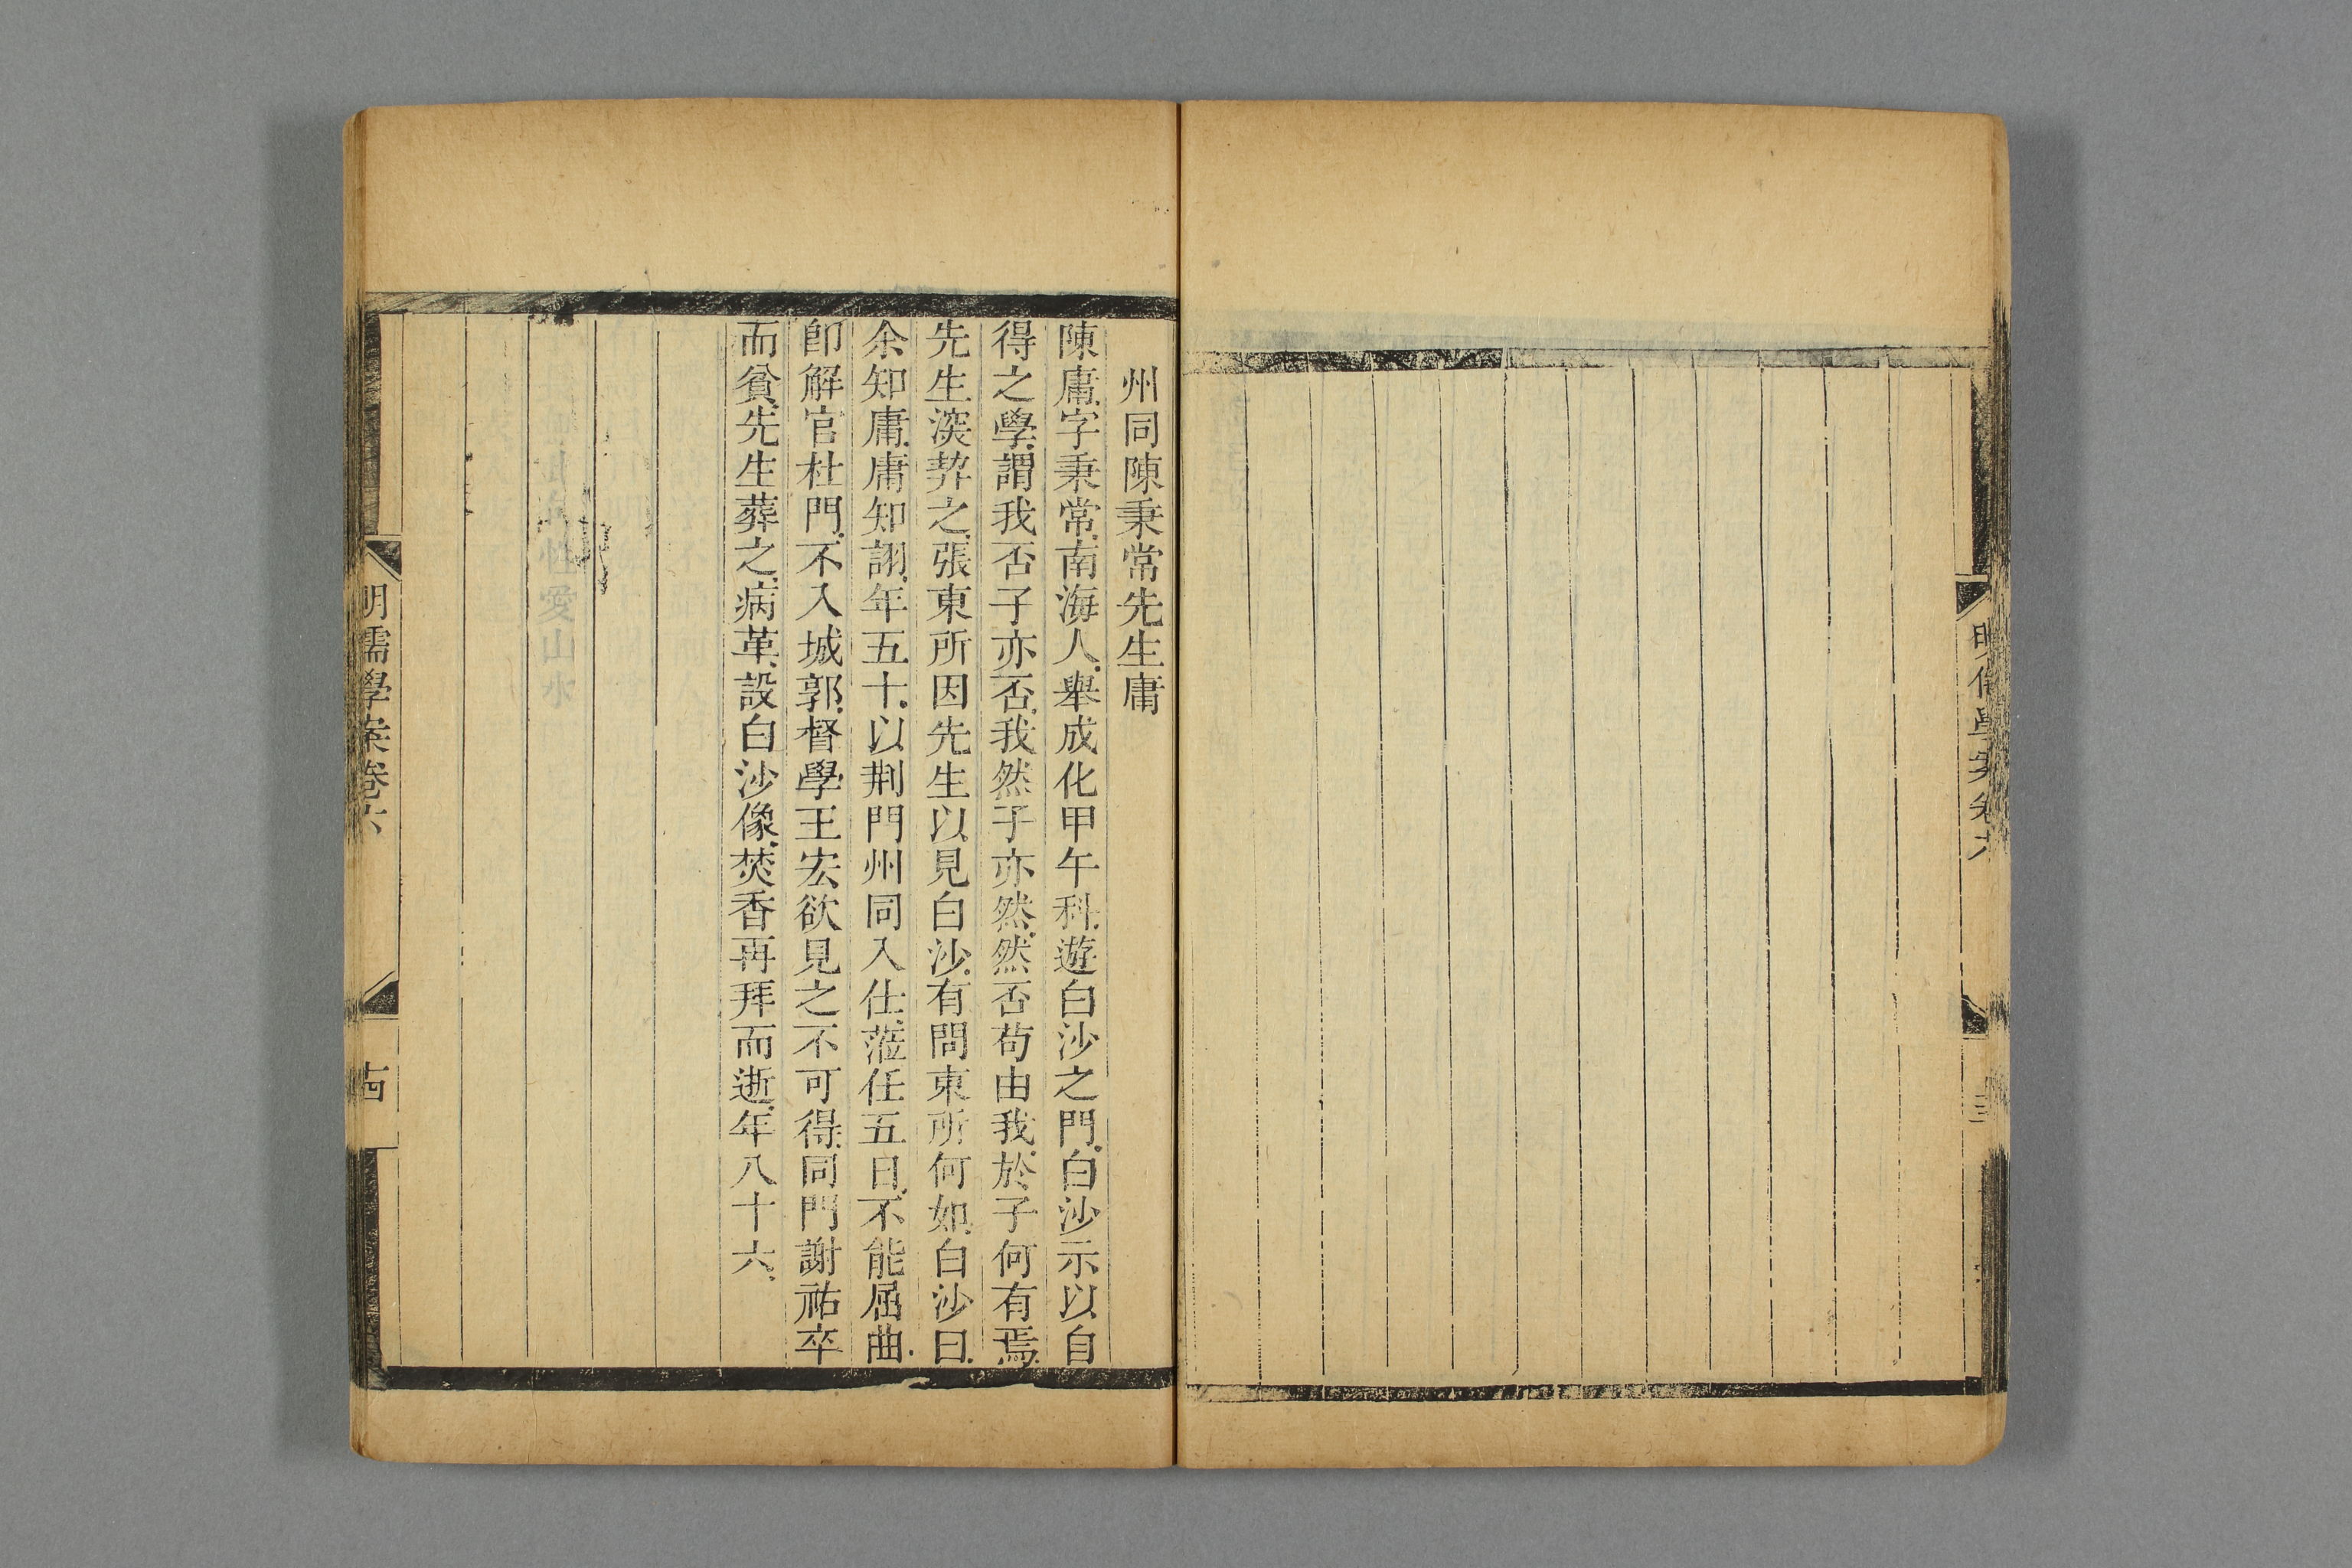 明儒學案卷六
州同陳秉常先生庸
陳庸字秉常南海人舉成化甲午科遊白沙之門白沙示以自
得之學謂我否子亦否我然子亦然然否苟由我於子何有焉
先生深契之張東所因先生以見白沙有問東所何如白沙曰
余知庸庸知詡年五十以荆門州同入仕蒞任五日不能屈曲
卽解官杜門不入城郭督學王宏欲見之不可得同門謝祐卒
而貧先生葬之病革設白沙像焚香再拜而逝年八十六
明儒學案卷六